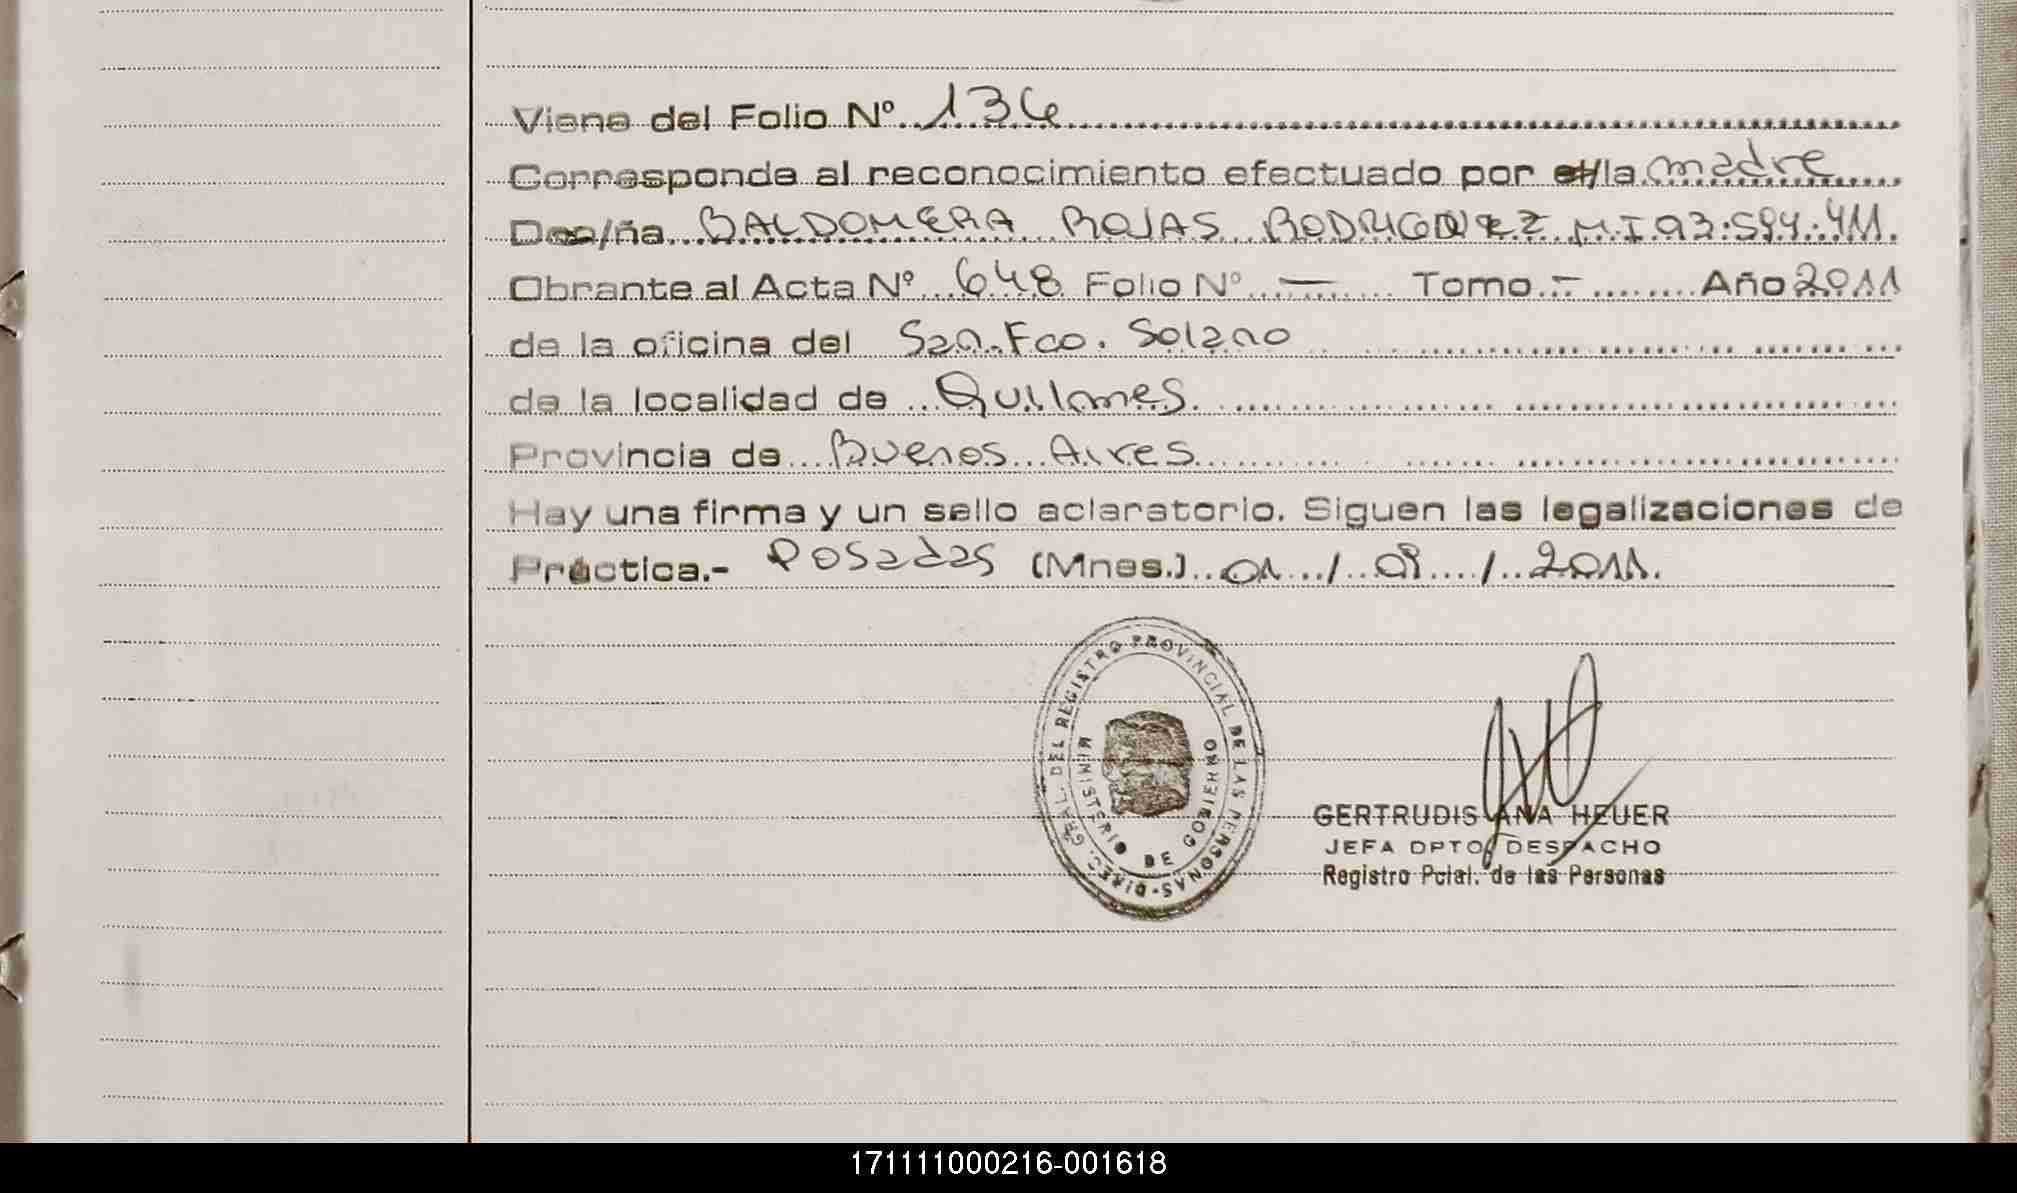 Viene del Folio Nº 136
Corresponde al reconocimiento efectuado por el/la madre
Don/ña BALDOMERA ROJAS RODRIGUEZ M.I.93.594.411.
Obrante al Acta Nº 648 Folio Nº — Tomo - Año 2011
de la oficina del San. Fco. Solano
de la localidad de Quilmes
Provincia de Buenos Aires
Hay una firma y un sello aclaratorio. Siguen las legalizaciones de
Práctica.- Posadas (Mnes.) 01 / 09 / 2011.
DIREC. GRAL. DEL REGISTRO PROVINCIAL DE LAS PERSONAS-
MINISTERIO DE GOBIERNO
GERTRUDIS ANA HEUER
JEFA DPTO DESPACHO
Registro Pcial. de las Personas
171111000216-001618